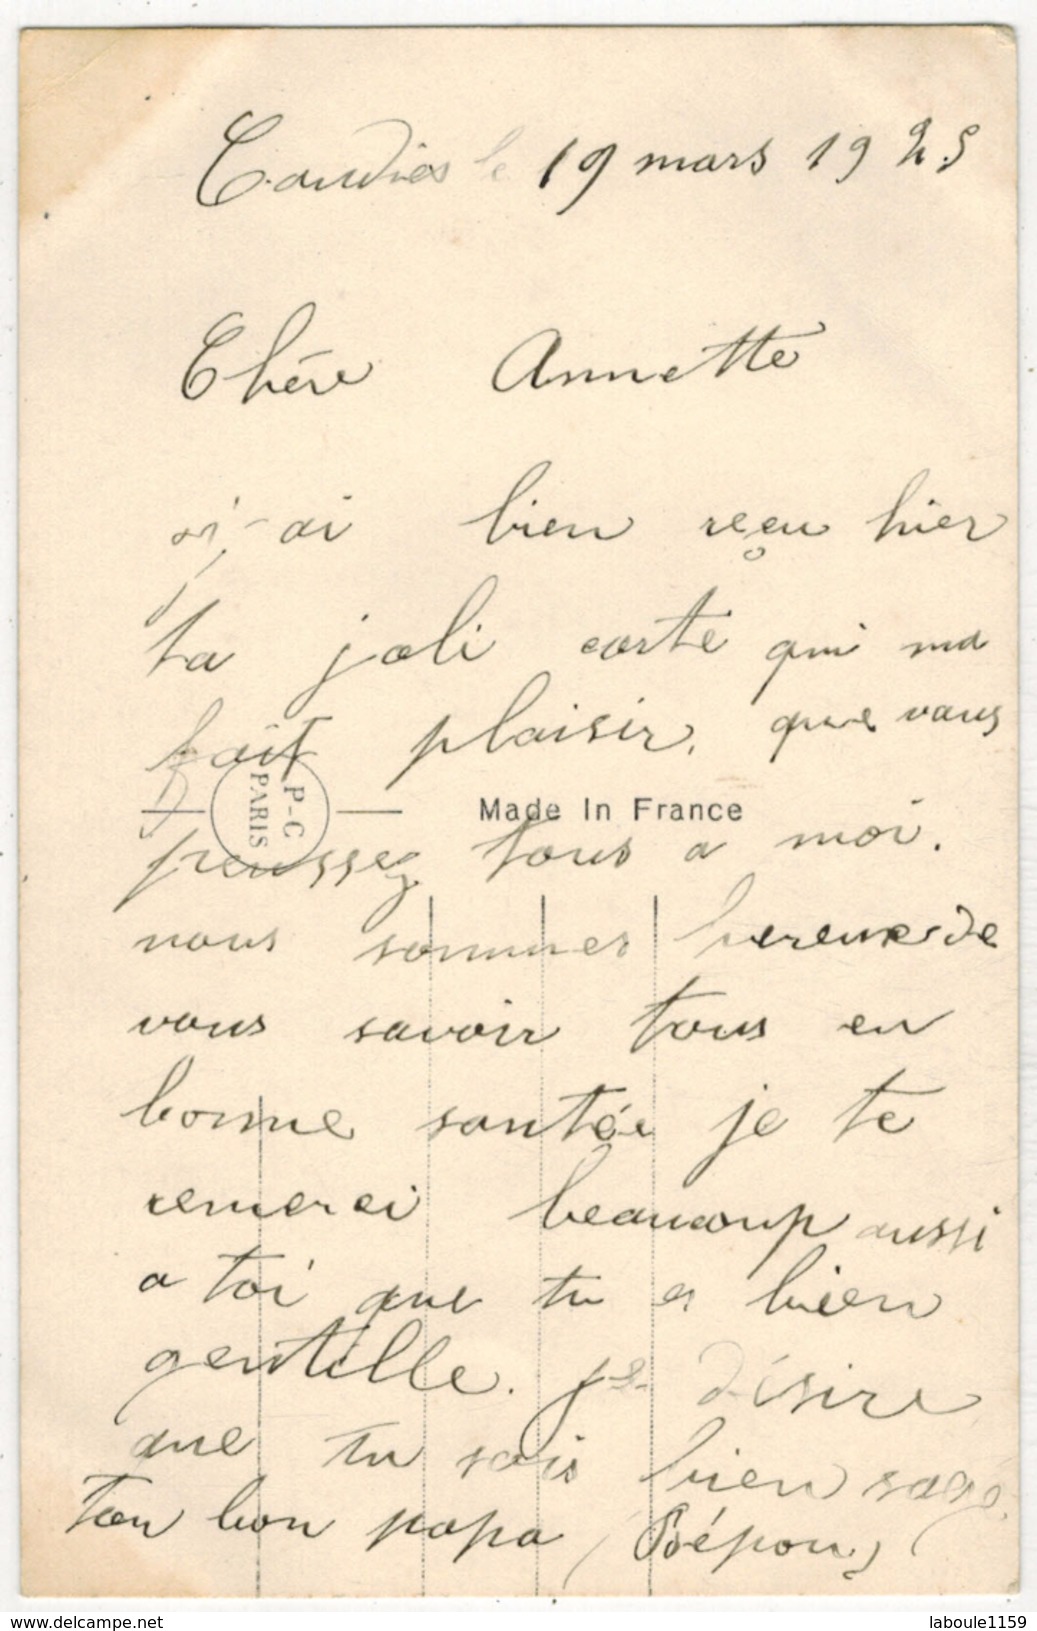 Caudies le 19 mars 1925
Chére Annette
j'-ai bien reçu hier
ta joli carte qui ma
fait plaisir. que vous
P-C
PARIS
Made In France
penssez tous a moi.
nous sommes hereuxes de
vous savoir tous en
bonne santée je te
remerci beaucoup aussi
a toi que tu es bien
gentille. je désire
que tu sois bien sage.
Ton bon papa (Pépon)
delcampe.net
laboule1159